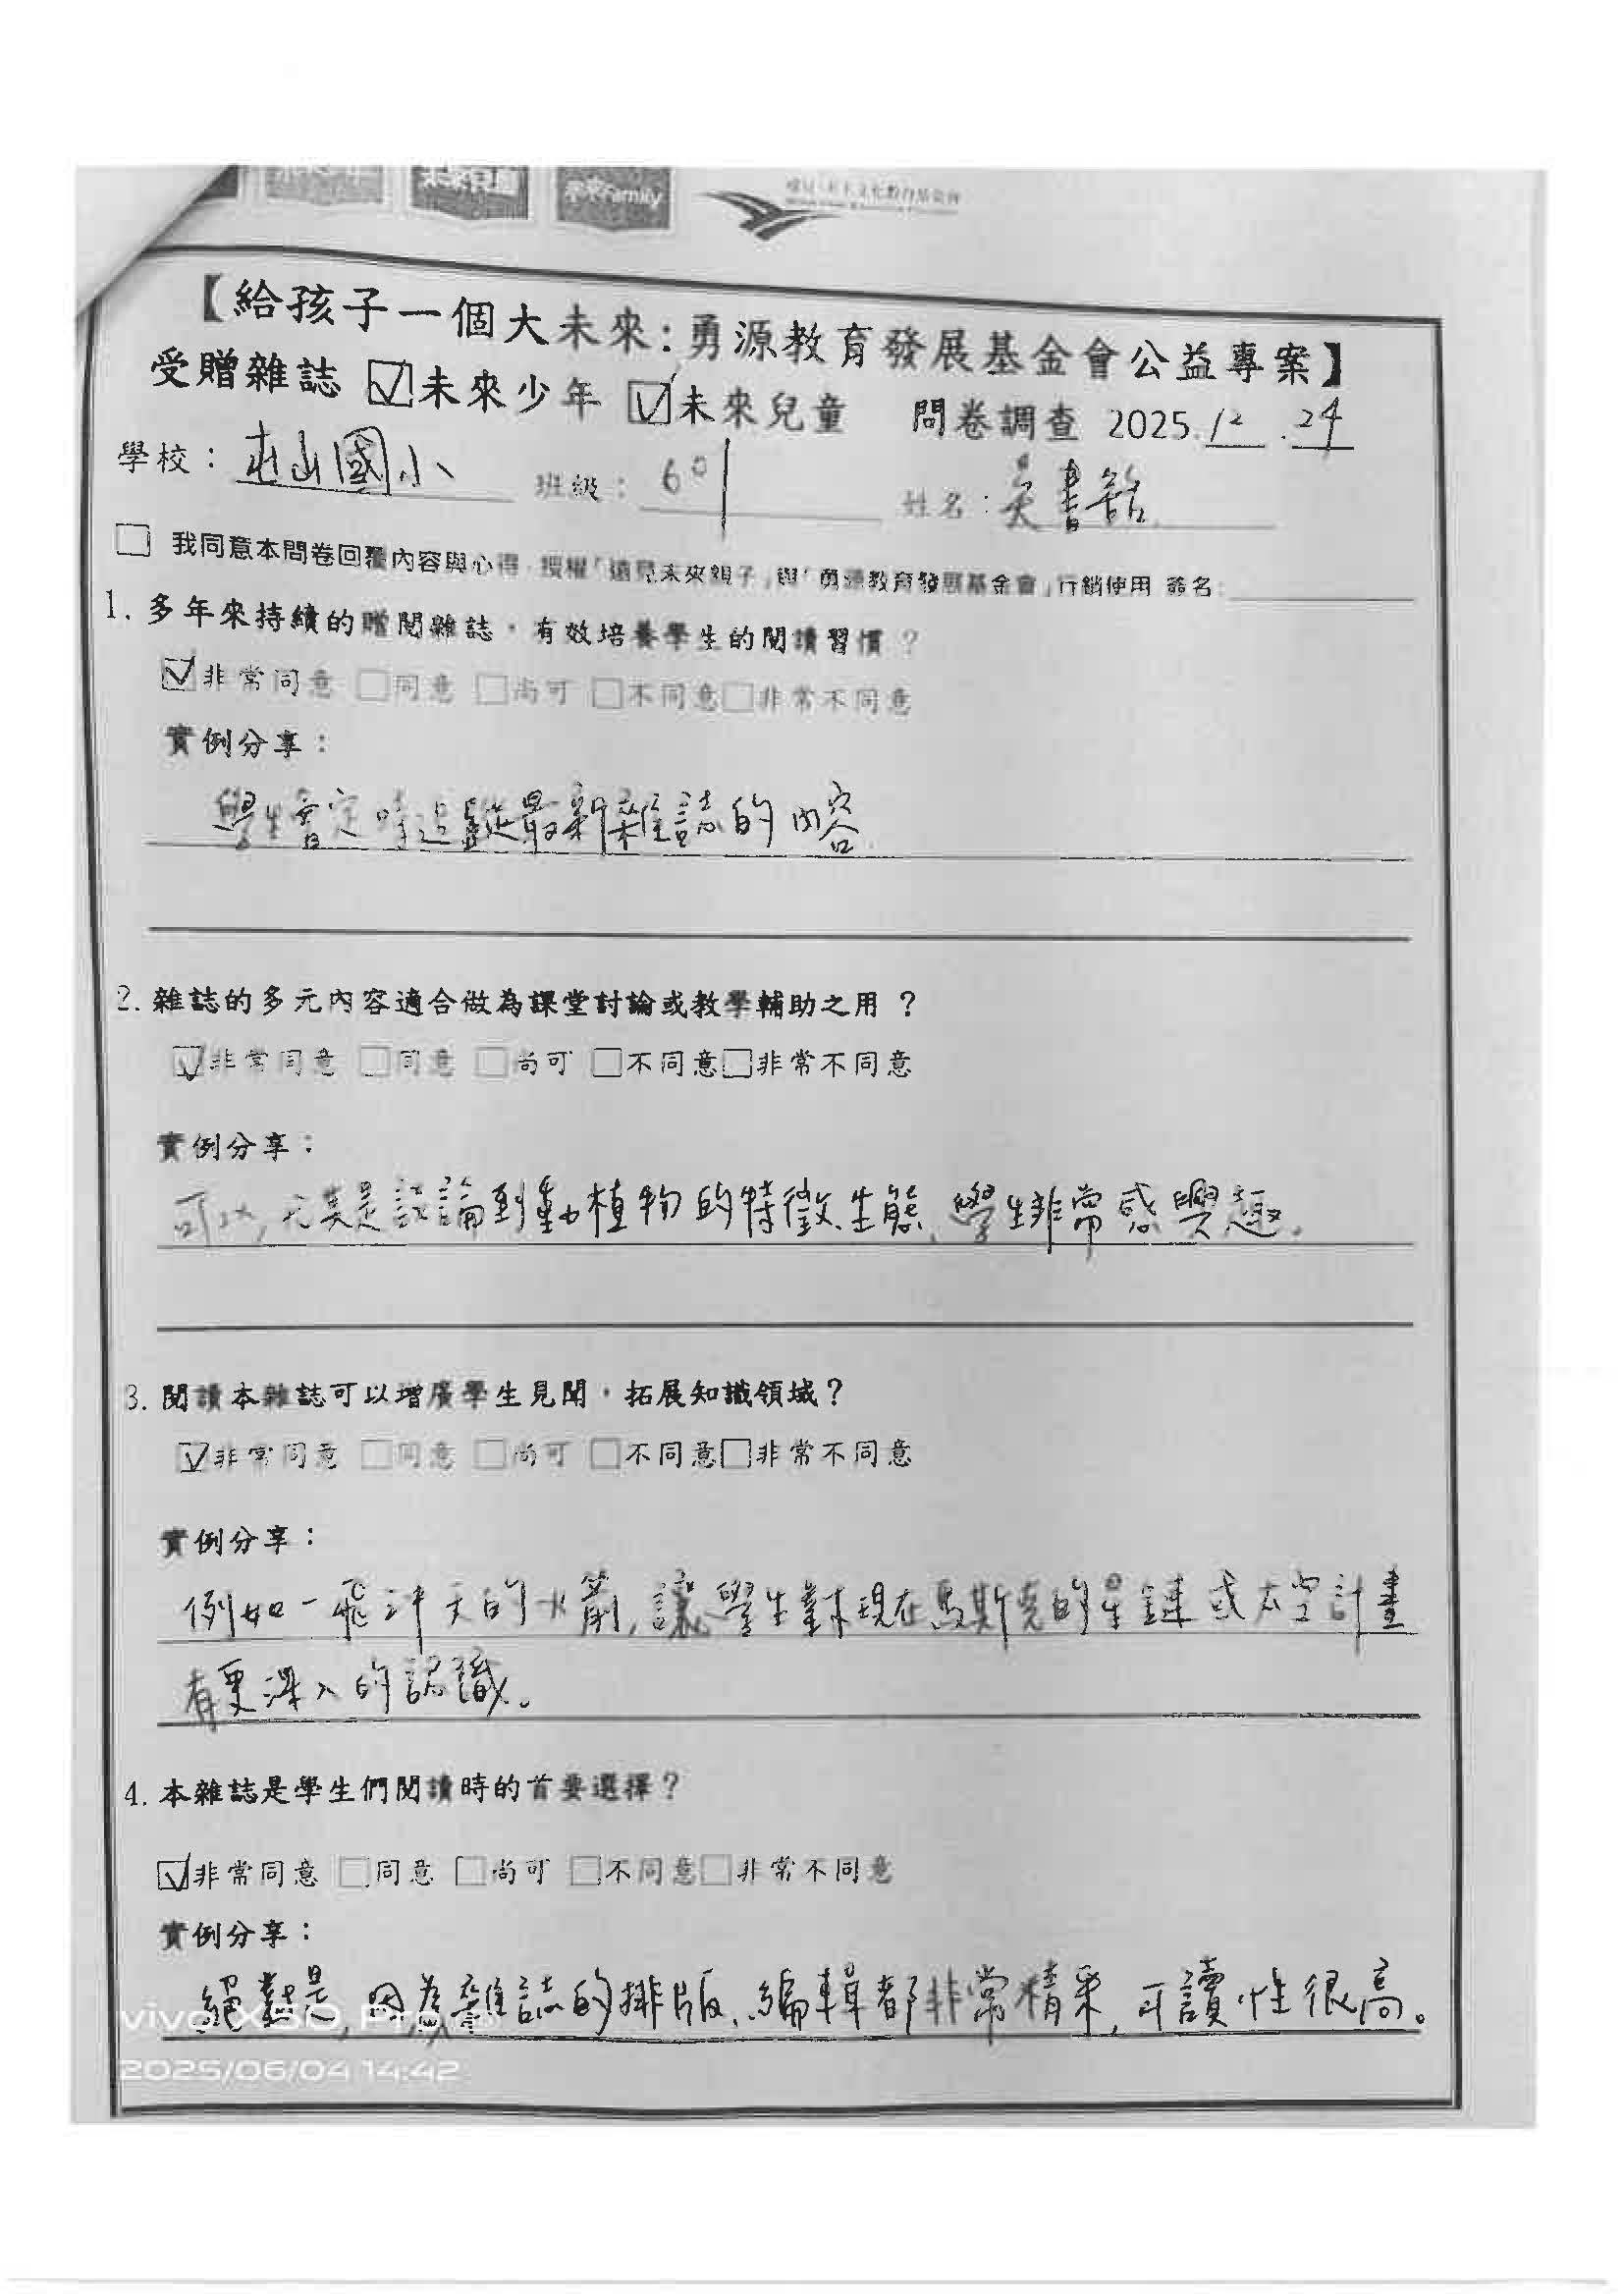 未來兒童
未來Family
【給孩子一個大未來:勇源教育發展基金會公益專案】
受贈雜誌 ☑未來少年 ☑未來兒童 問卷調查 2025.12.24
學校:屯山國小 班級:601 姓名:吳書銘
□ 我同意本問卷回覆內容與心得,授權「遠見未來親子」與「勇源教育發展基金會」行銷使用 簽名:
1. 多年來持續的贈閱雜誌,有效培養學生的閱讀習慣?
☑非常同意 □同意 □尚可 □不同意□非常不同意
實例分享:
學生會定時追蹤最新雜誌的內容.
2. 雜誌的多元內容適合做為課堂討論或教學輔助之用 ?
☑非常同意 □同意 □尚可 □不同意□非常不同意
實例分享:
可以,尤其是談論到動植物的特徵、生態,學生非常感興趣.
3. 閱讀本雜誌可以增廣學生見聞,拓展知識領域?
☑非常同意 □同意 □尚可 □不同意□非常不同意
實例分享:
例如一飛沖天的火箭,讓學生對現在馬斯克的星鏈或太空計畫
有更深入的認識。
4. 本雜誌是學生們閱讀時的首要選擇?
☑非常同意 □同意 □尚可 □不同意□非常不同意
實例分享:
絕對是,因為雜誌的排版、編輯都非常精采,可讀性很高。
2025/06/04 14:42